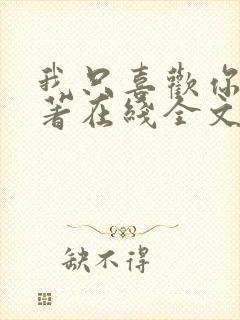 我只喜歡你
著在綫全文
缺不得